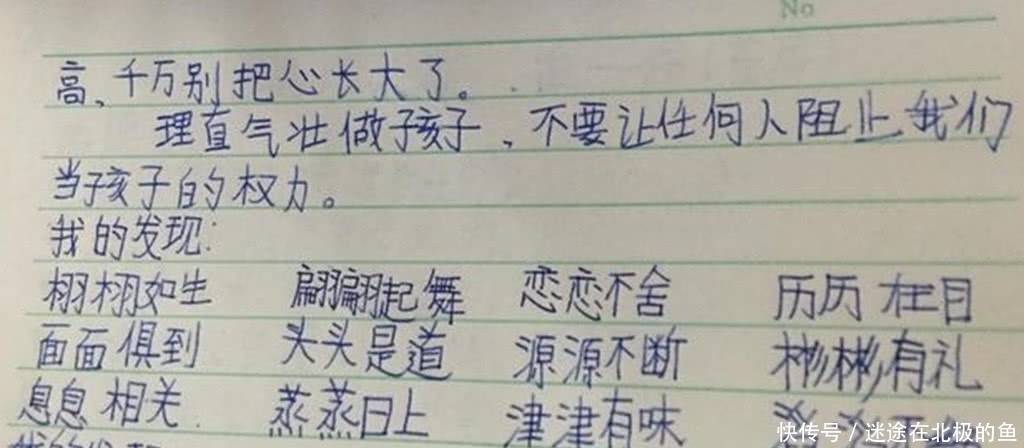 No
高、千万别把心长大了。
理直气壮做孩子，不要让任何人阻止我们
当孩子的权力。
我的发现：
栩栩如生 翩翩起舞 恋恋不舍 历历在目
面面俱到 头头是道 源源不断 彬彬有礼
息息相关 蒸蒸日上 津津有味
快传号／迷途在北极的鱼